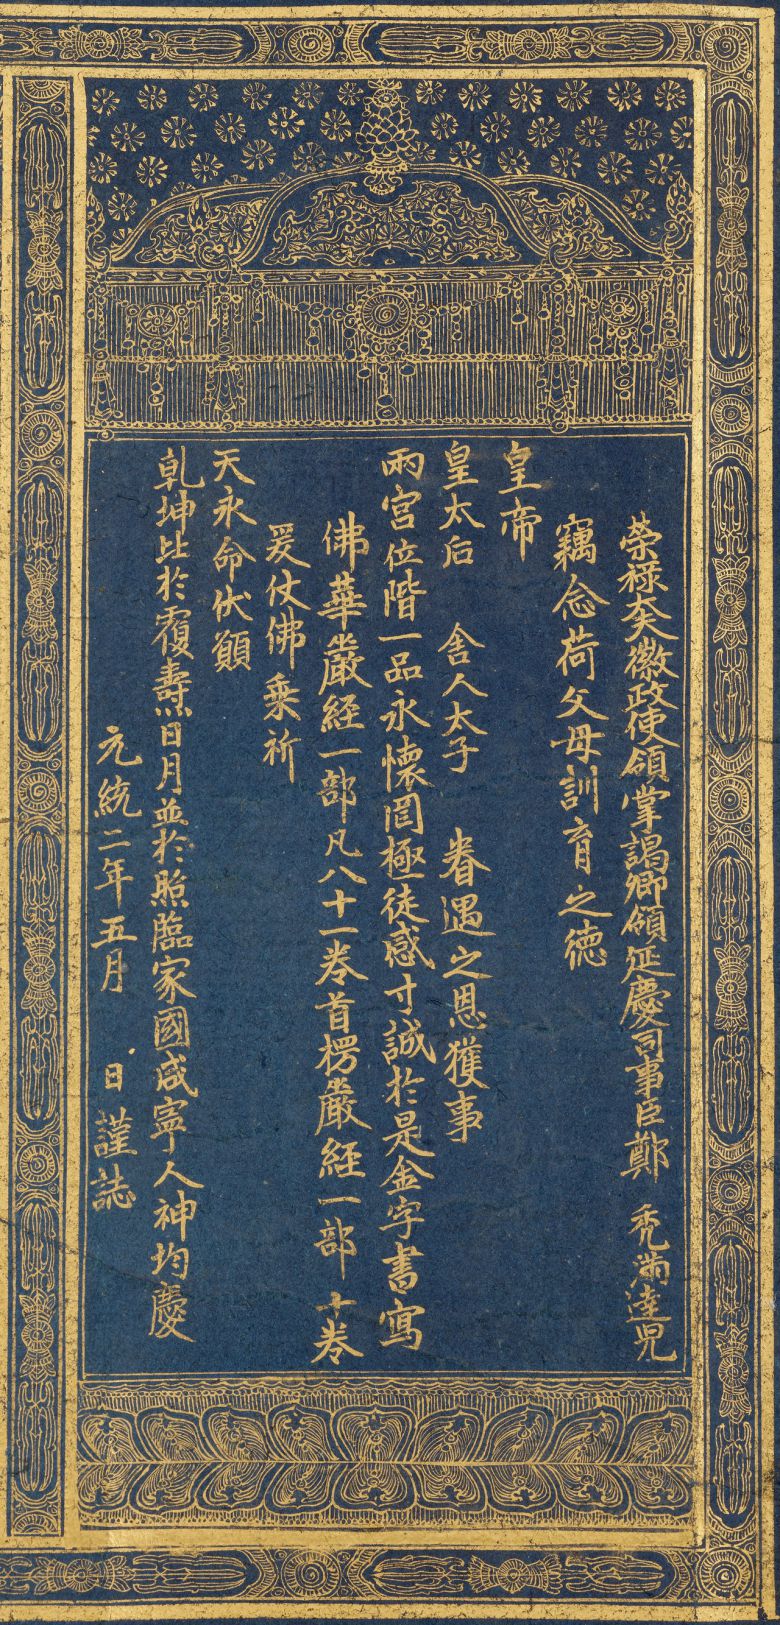 榮祿大夫徽政使領掌謁卿領延慶司事臣鄭 禿滿達兒
竊念荷父母訓育之德
皇帝
皇太后 舍人太子 眷遇之恩獲事
兩宮位階一品永懷罔極徒感寸誠於是金字書寫
佛華嚴經一部凡八十一卷首楞嚴經一部十卷
爰仗佛乗祈
天永命伏願
乾坤比於覆燾日月並於照臨家國咸寧人神均慶
元統二年五月 日謹誌